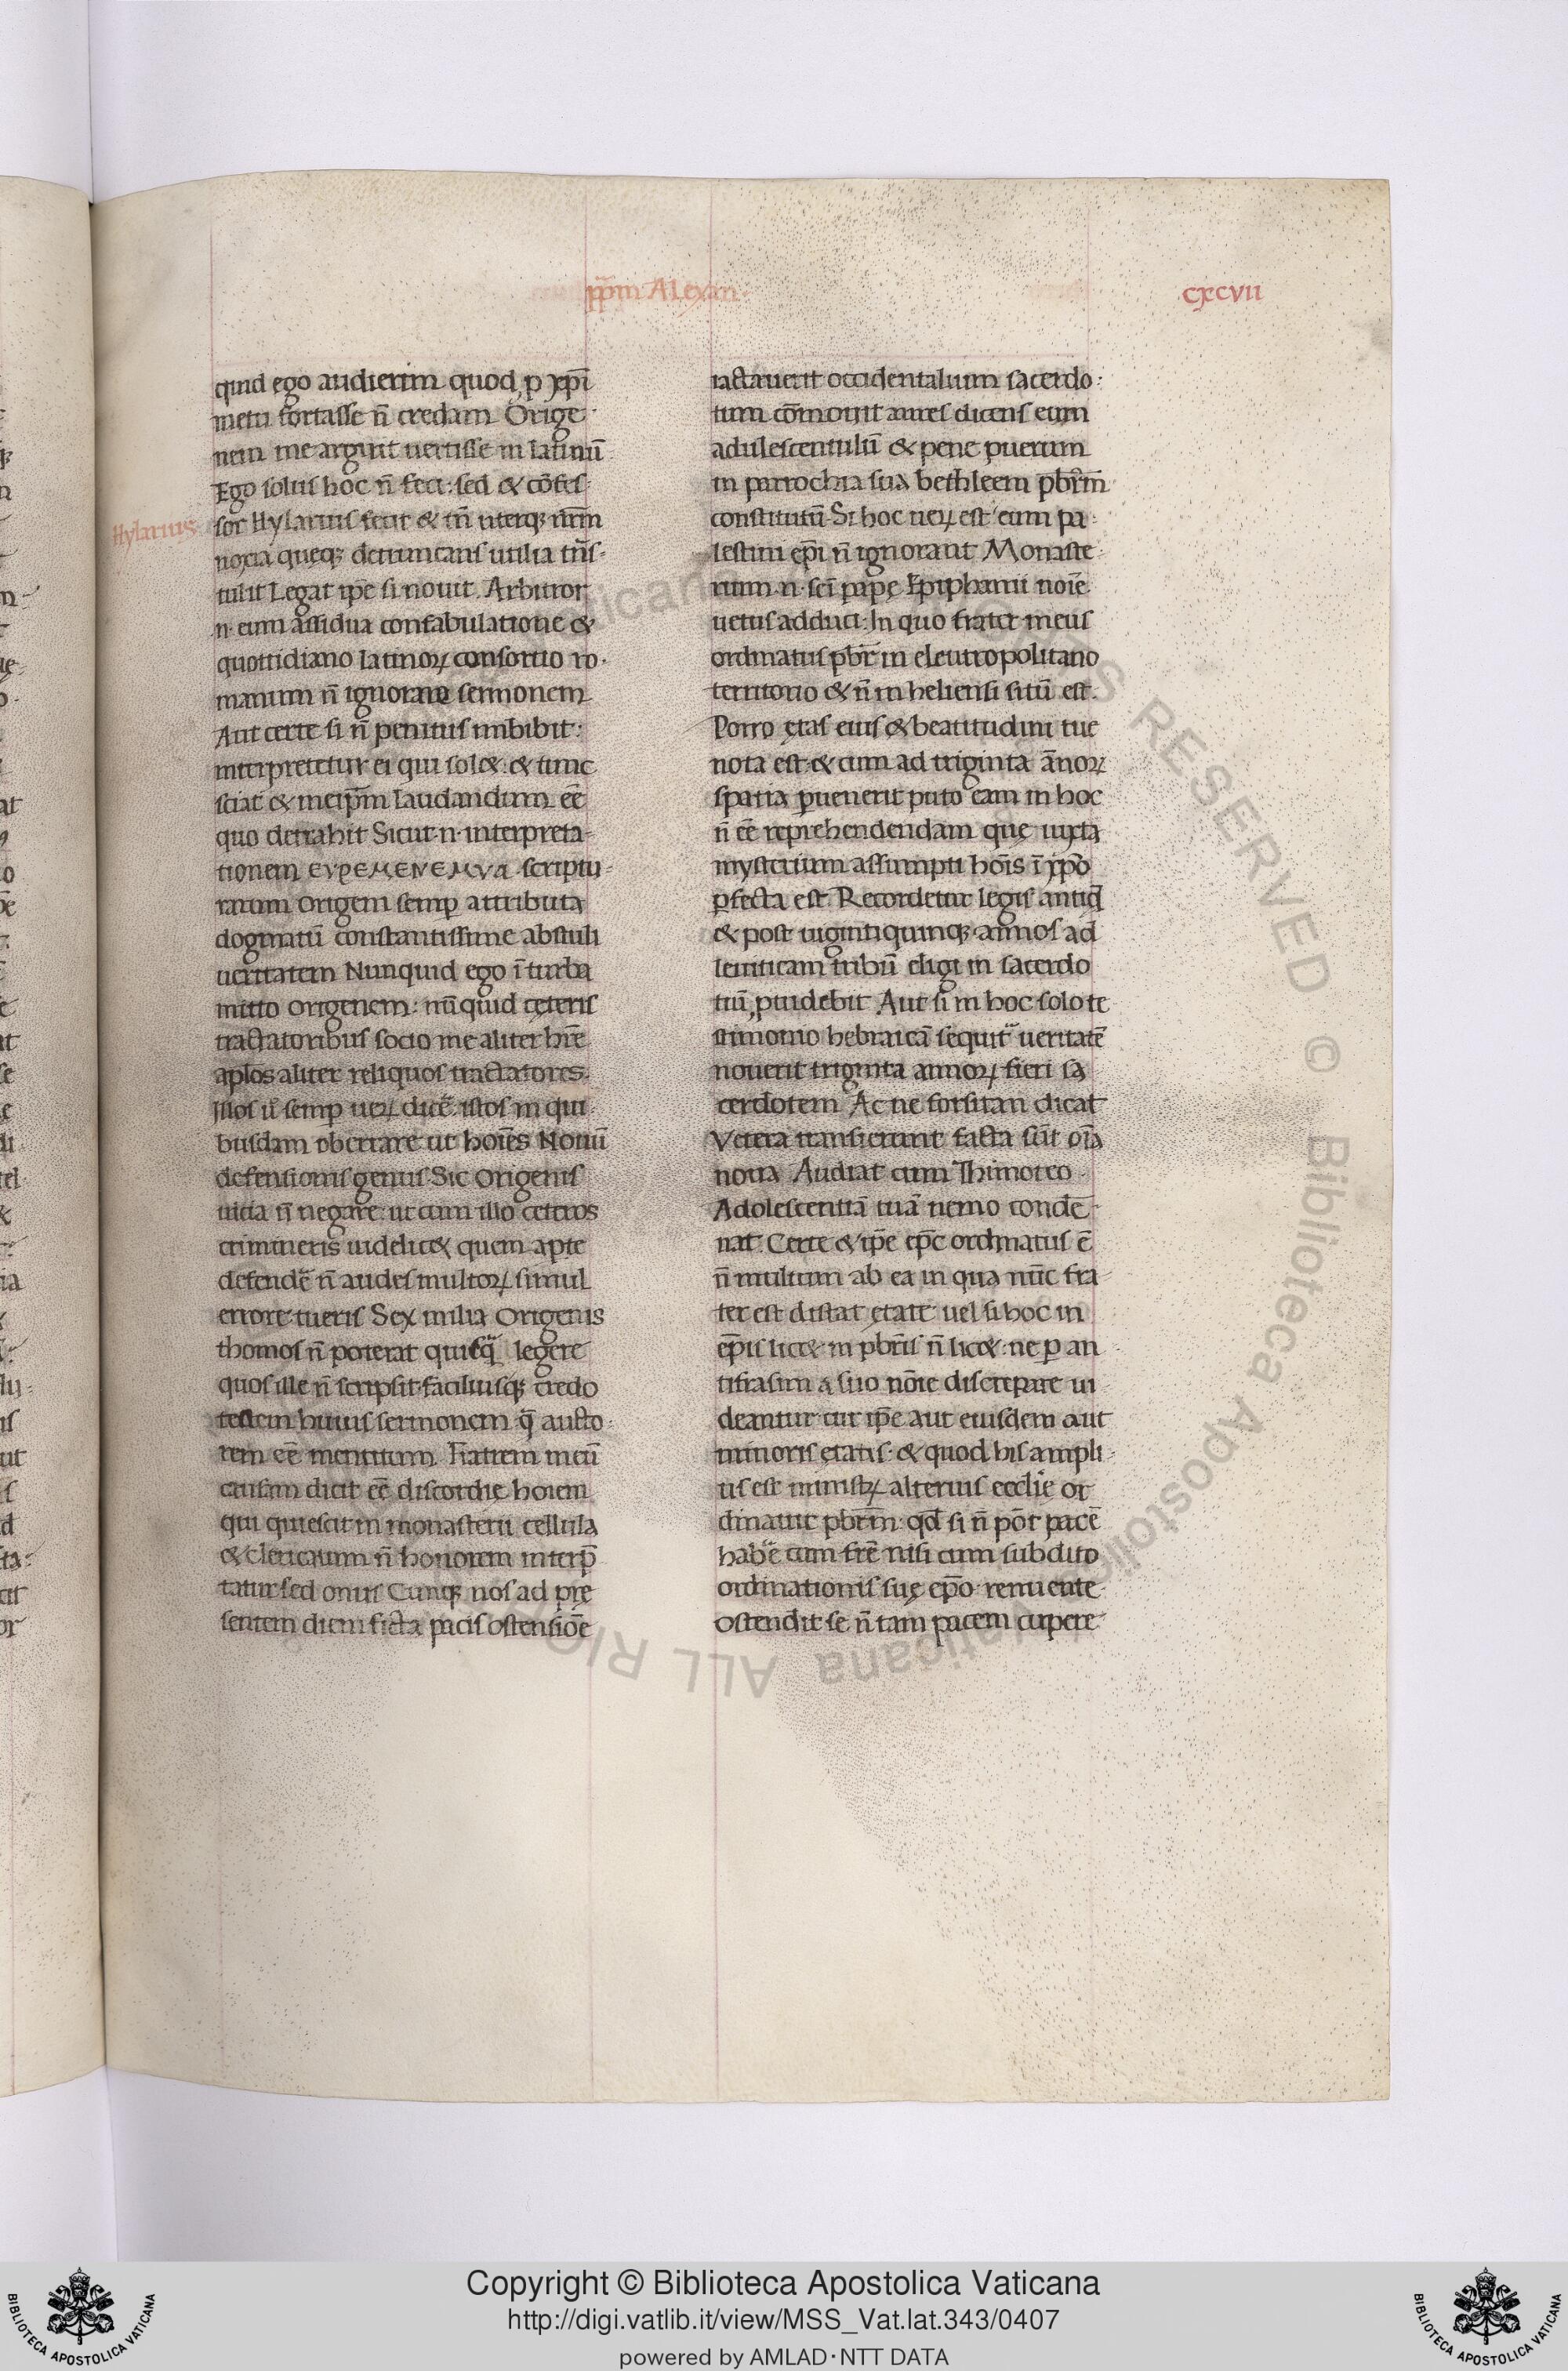 ppm̃ Alexan·
cxcvii
quid ego audierim quod p xp̄i
metu fortasse n̄ credam Orige·
nem me arguit uertisse in latinū
Ego solus hoc n̄ feci: sed & cōfes·
Hylarius
sor Hylarius fecit & tn̄ uterq; nr̄m
noxia queq; detruncans utilia trās·
tulit Legat ip̄e si nouit. Arbitror
n· eum assidua confabulatione &
quottidiano latinoꝝ consortio ro·
manum n̄ ignorare sermonem
Aut certe si n̄ penitus imbibit:
interpretetur ei qui sol&. & tunc
sciat & meip̄m laudandum eē
quo detrahit Sicut· n· interpreta-
tionem scriptu-
rarum origem semp attributa
dogmatū constantissime abstuli
ueritatem Nunquid ego ī turba
mitto origenem: nūquid ceteris
tractatoribus socio me aliter hr̄e
ap̄los aliter reliquos tractatores·
Illos n̄ semp ueꝝ dicē· istos in qui·
busdam oberrare ut hoīes Nouū
defensionis genus· Sic Origenis
uicia n̄ negare: ut cum illo ceteros
crimineris uidelic& quem apte
defendē n̄ audes multoꝝ simul
errore tueris Sex milia Origenis
thomos n̄ poterat quisq̄ legere
quos ille n̄ scripsit· faciliusq; credo
testem huius sermonem q̄ aucto·
rem eē mentitum. Fratrem meū
causam dicit eē discordie hoīem
qui quiescit in monasterii cellula
& clericatum n̄ honorem interp̄
tatur sed onus Cunq; nos ad pre
sentem diem ficta pacis ostensiōe
iactauerit occidentalium sacerdo:
tum cōmouit aures dicens eum
adulescentulū & pene puerum
in parrochia sua bethleem pbr̄m
constitutū· Si hoc ueꝝ est eum pa·
lestini ep̄i n̄ ignorant Monaste·
rium· n· sc̄i pape Epiphanii noīe
uetus adduci: In quo frater meus
ordinatus pbr̄ in eleutropolitano
territorio & n̄ in heliensi sitū est.
Porro ętas eius & beatitudini tue
nota est· & cum ad triginta ānoꝝ
spatia puenerit puto eam in hoc
n̄ eē reprehendendam que iuxta
mysterium assumpti hoīs ī xp̄o
pfecta est. Recordetur legis antiq̄
& post uigintiquinq; annos ad
leuiticam tribū eligi in sacerdo
tiū puidebit Aut si in hoc solo te
stimonio hebraicā sequit̄ ueritatē
nouerit triginta annoꝝ fieri sa
cerdotem Ac ne forsitan dicat
Vetera transierunt facta sūt oīa
noua Audiat cum Thimoteo·
Adolescentiā tuā nemo condē·
nat. Certe & ip̄e ep̄c ordinatus ē
n̄ multum ab ea in qua nūc fra
ter est distat ętate· uel si hoc in
ep̄is lic& in pbr̄is n̄ lic&: ne p an
tifrasim a suo nōie discrepare ui
deantur cur ip̄e aut eiusdem aut
minoris ętatis· & quod his ampli·
us est ministꝝ alterius ecclīe or
dinauit pbr̄m· qd̄ si n̄ pōt pacē
habē cum fr̄e nisi cum subdito
ordinationis suę ep̄o renuente·
Ostendit se n̄ tam pacem cupere·
Copyright © Biblioteca Apostolica Vaticana
http://digi.vatlib.it/view/MSS_Vat.lat.343/0407
powered by AMLAD·NTT DATA
BIBLIOTECA APOSTOLICA VATICANA
BIBLIOTECA APOSTOLICA VATICANA